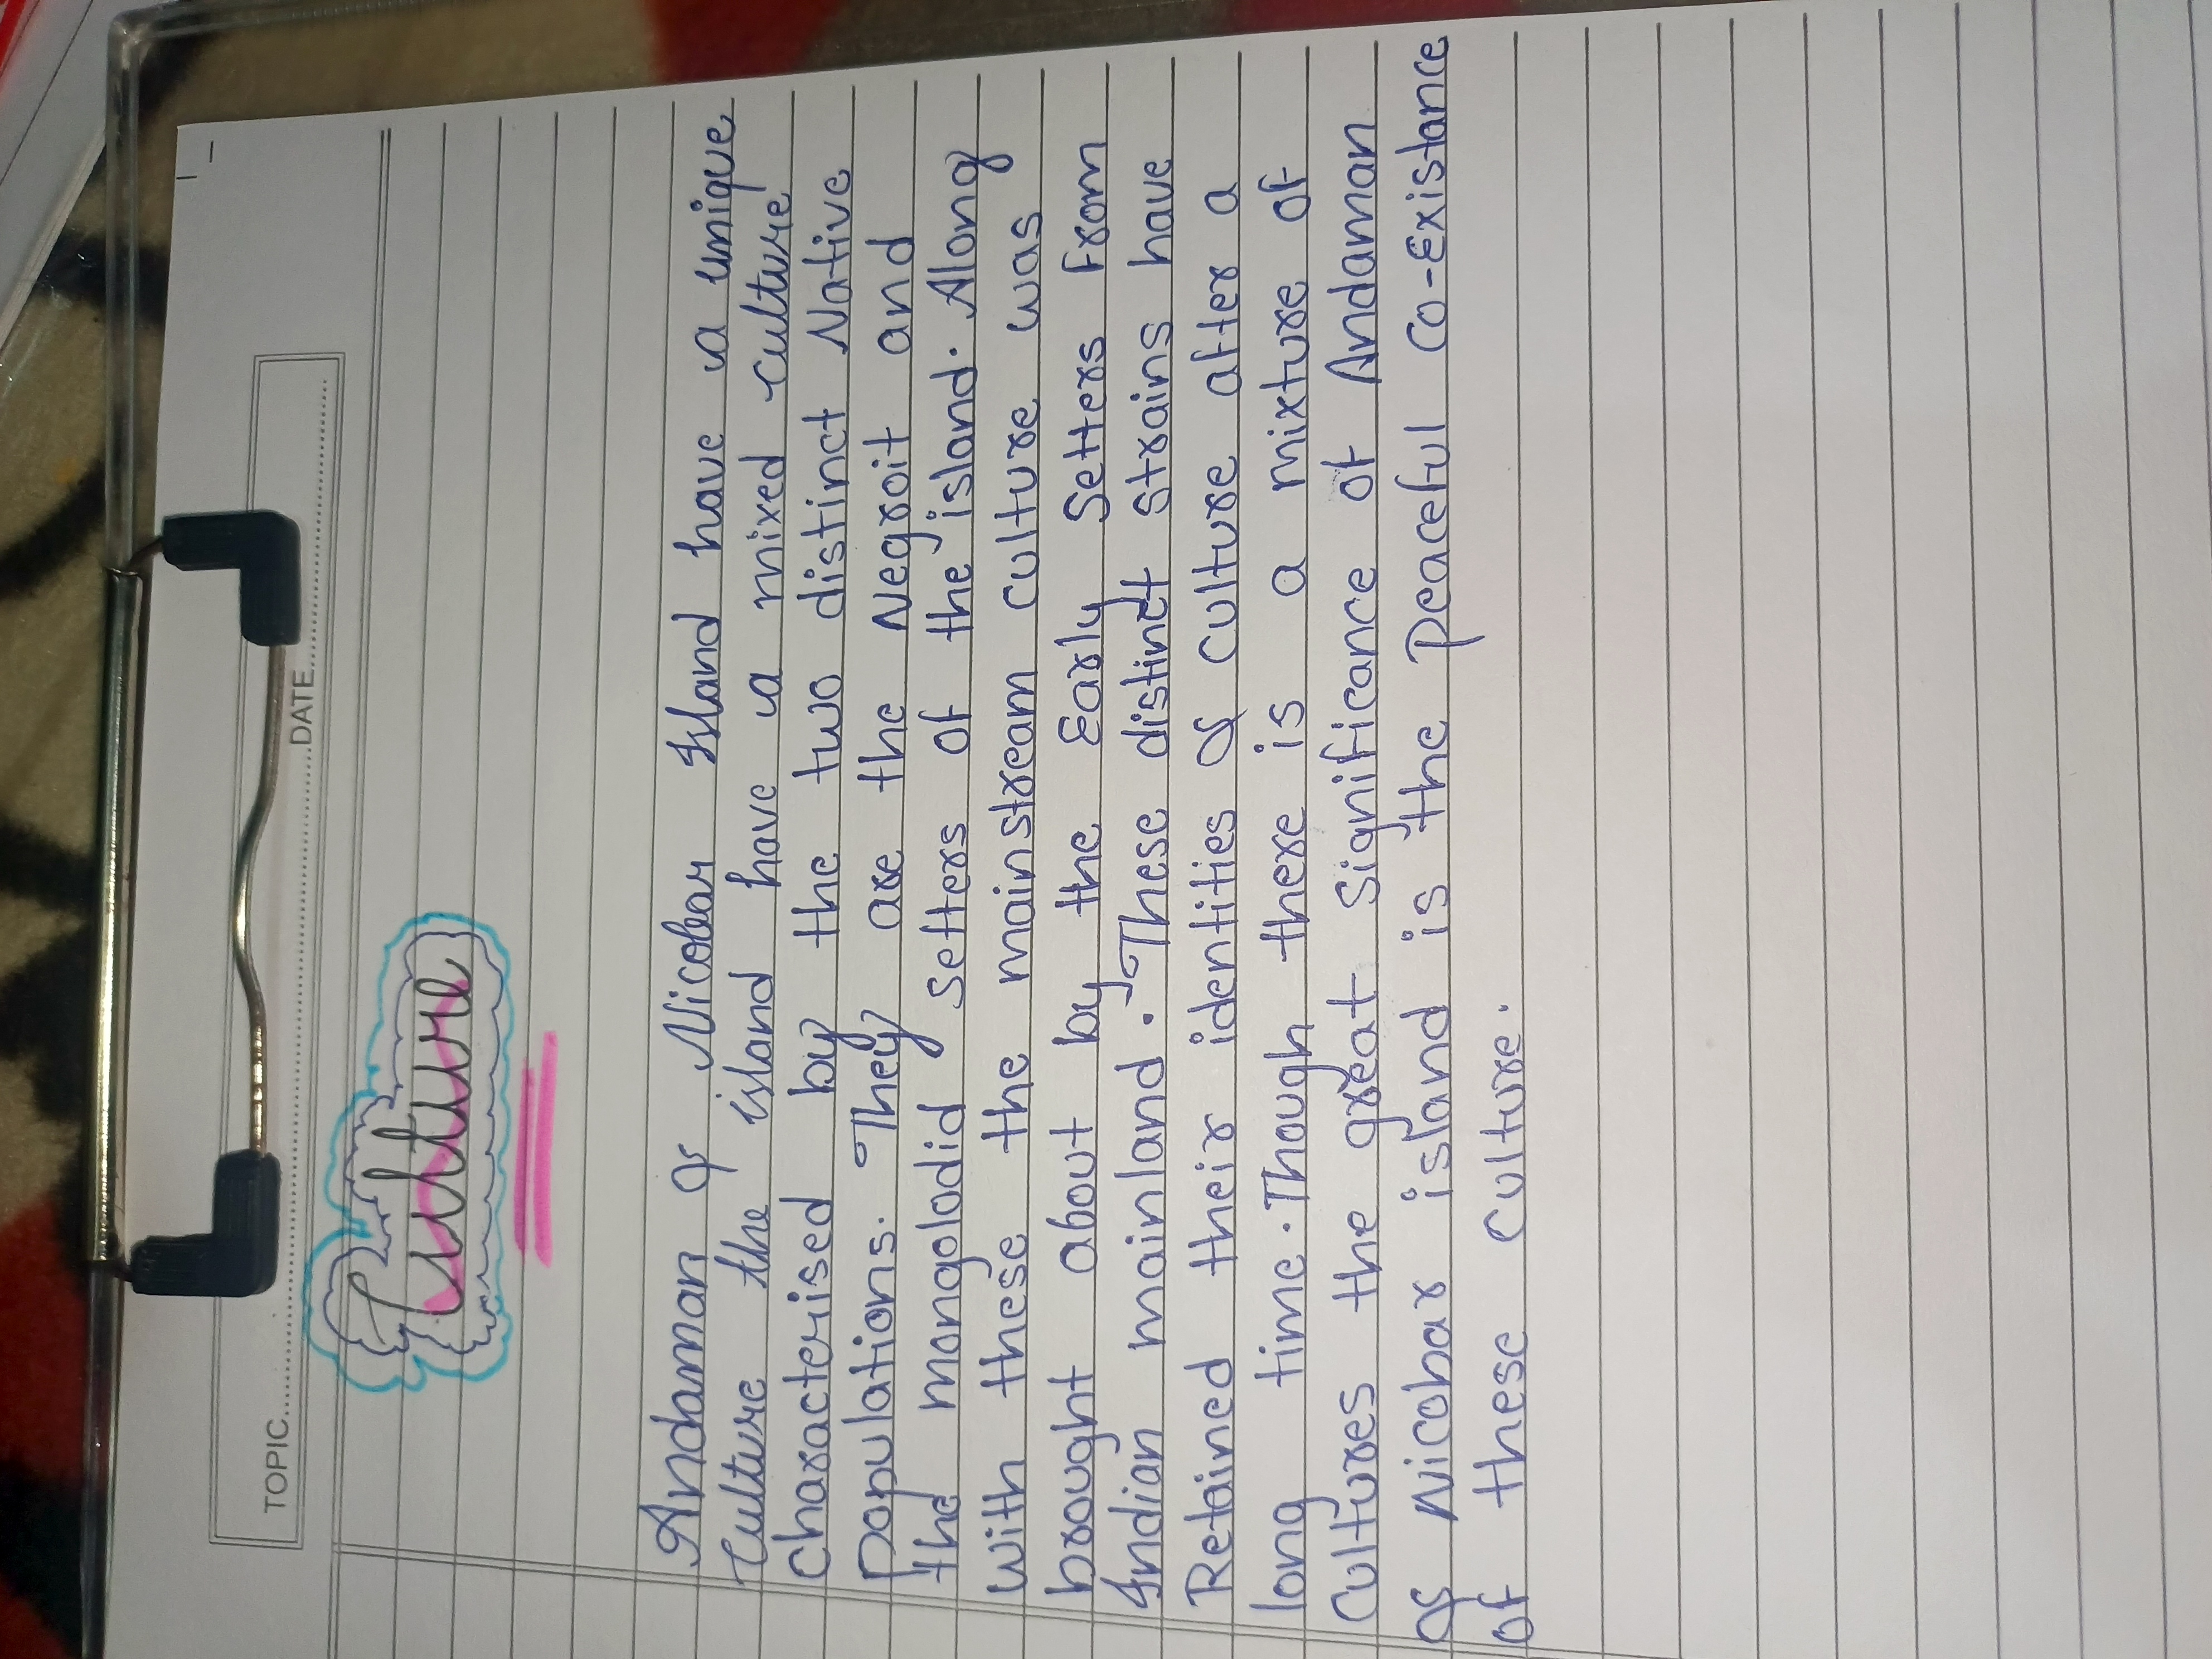 TOPIC..............................................DATE..............................
Culture
Andaman & Nicobar Island have a unique
Culture the island have a mixed culture
characterised by the two distinct Native
Populations. They are the Negroit and
the mongolodid setters of the island. Along
with these the mainstream culture was
brought about by the Early Setters from
Indian mainland. These distinct strains have
Retained their identities & culture after a
long time. Though there is a mixture of
Cultures the great Significance of Andaman
& Nicobar island is the peaceful co-Existance
of these culture.